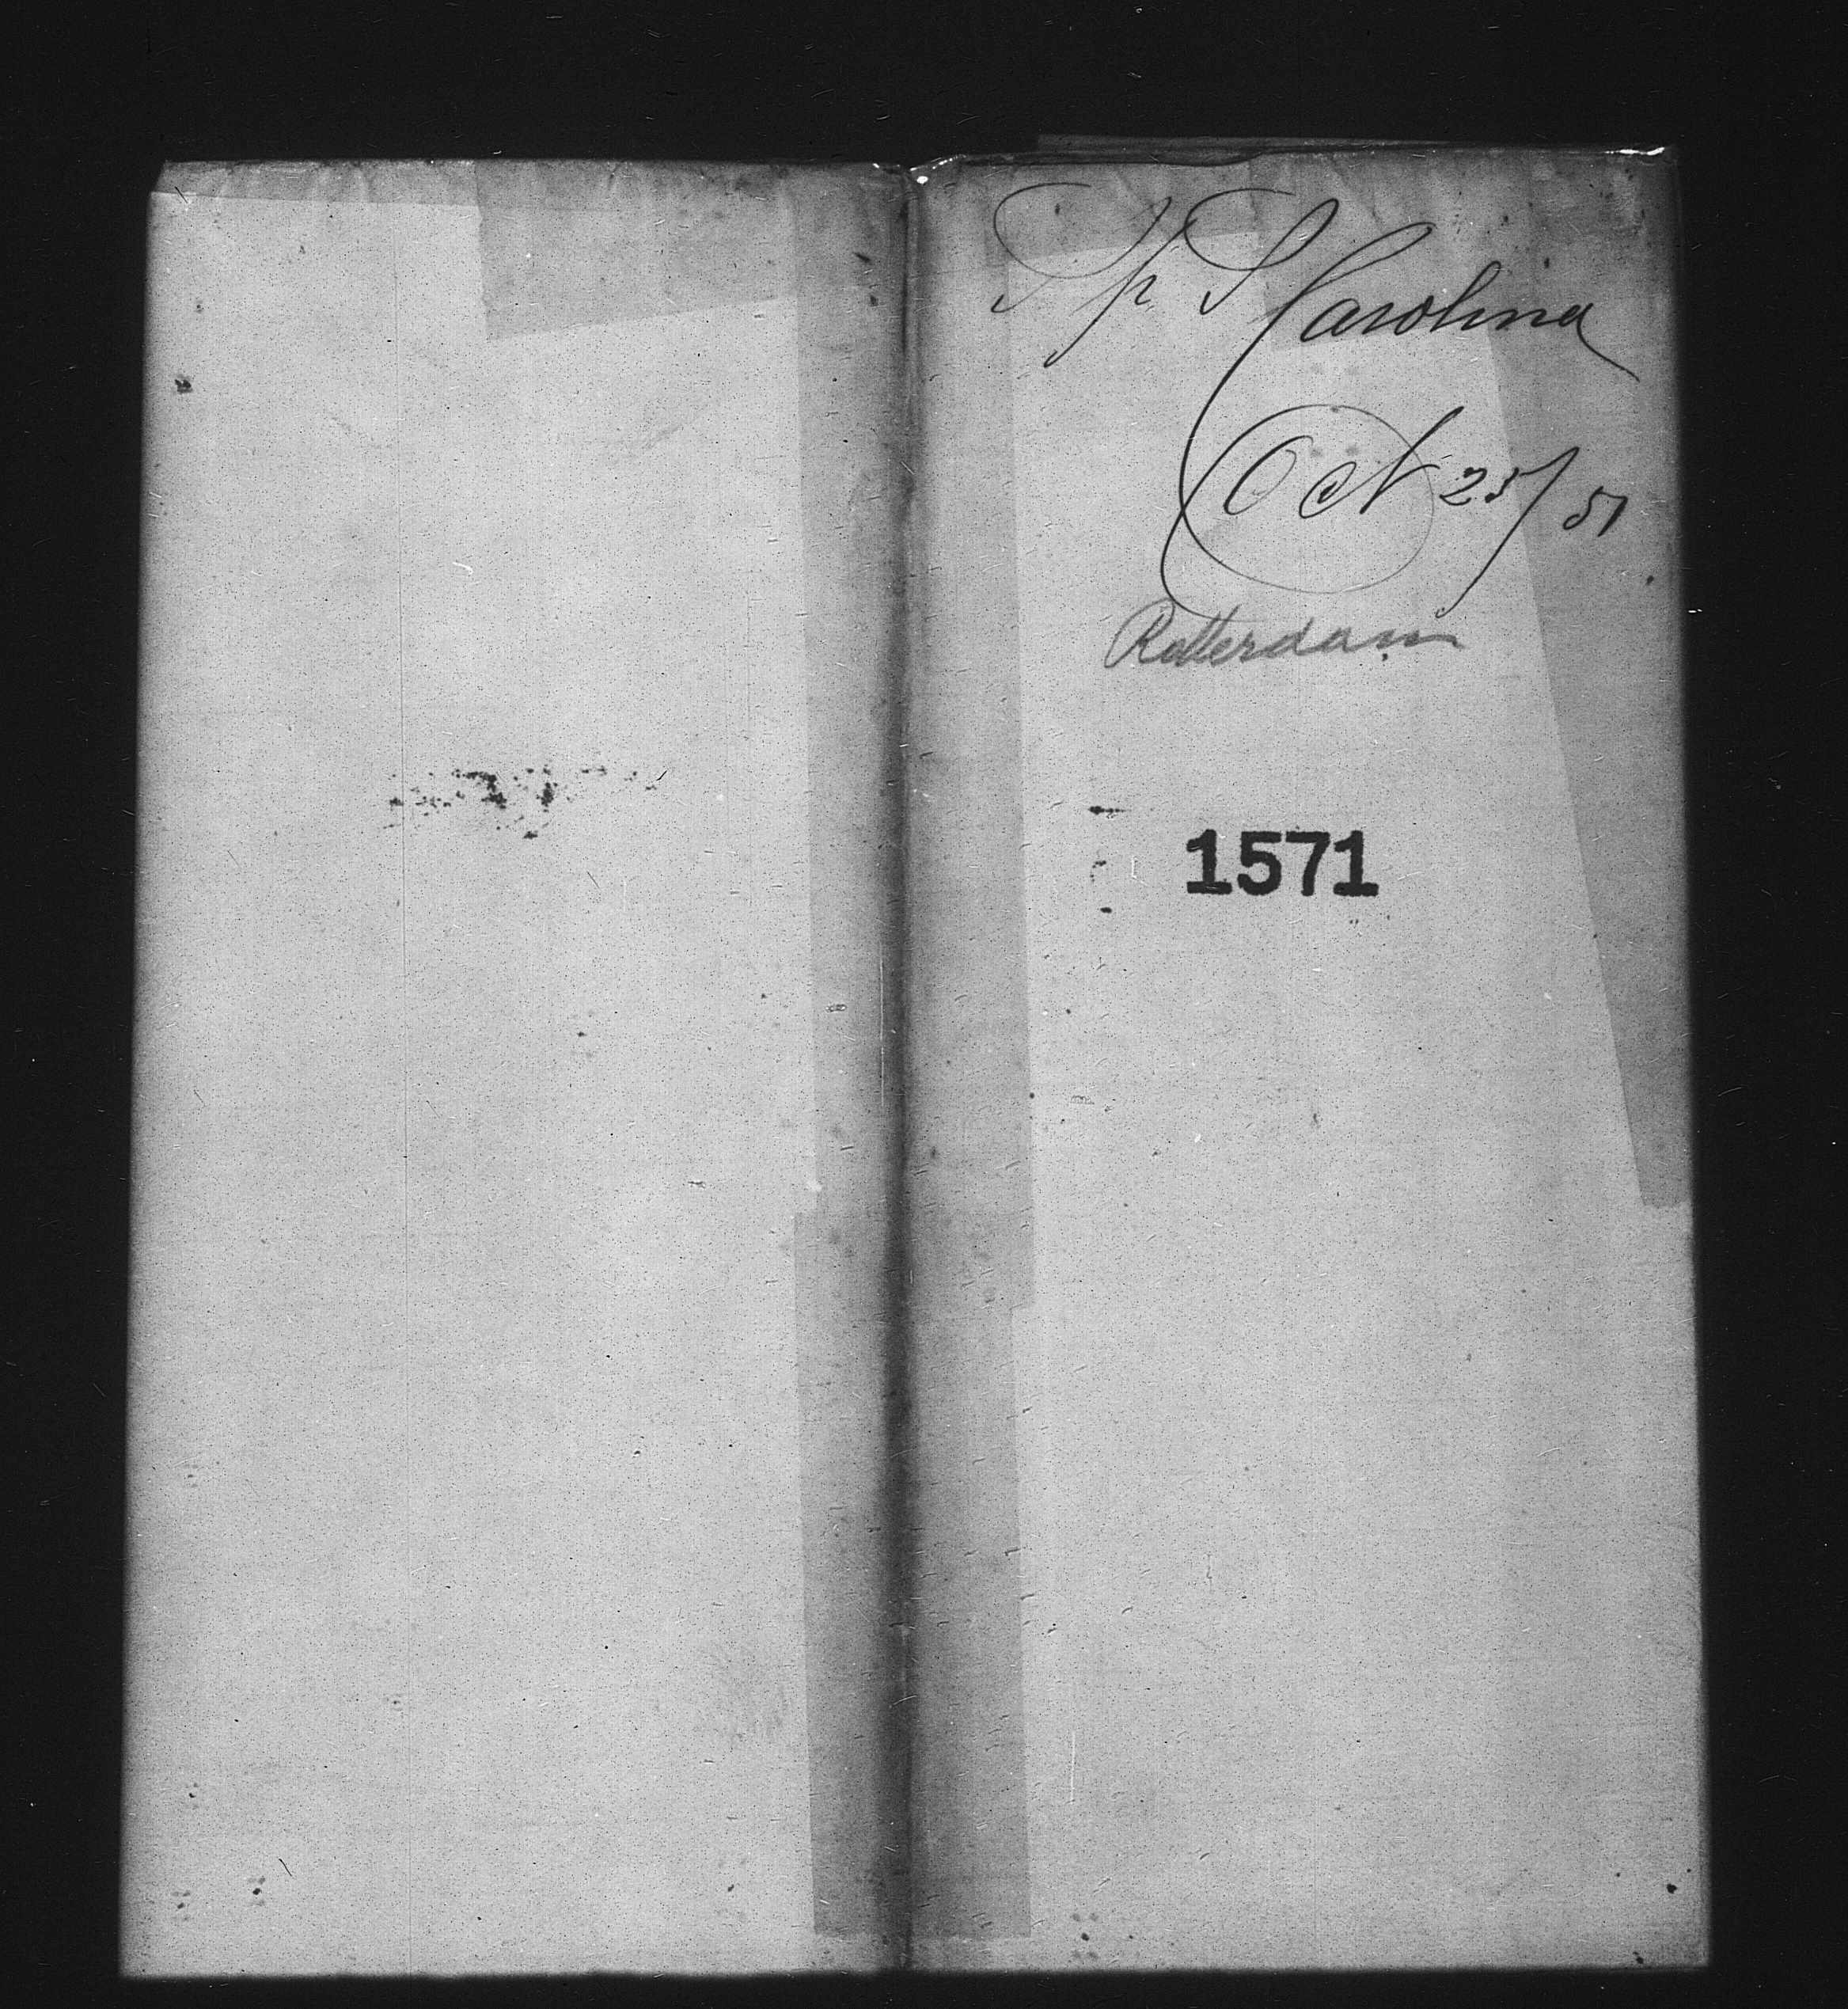 Sh S Carolina
Oct 25/51
Rotterdam
1571